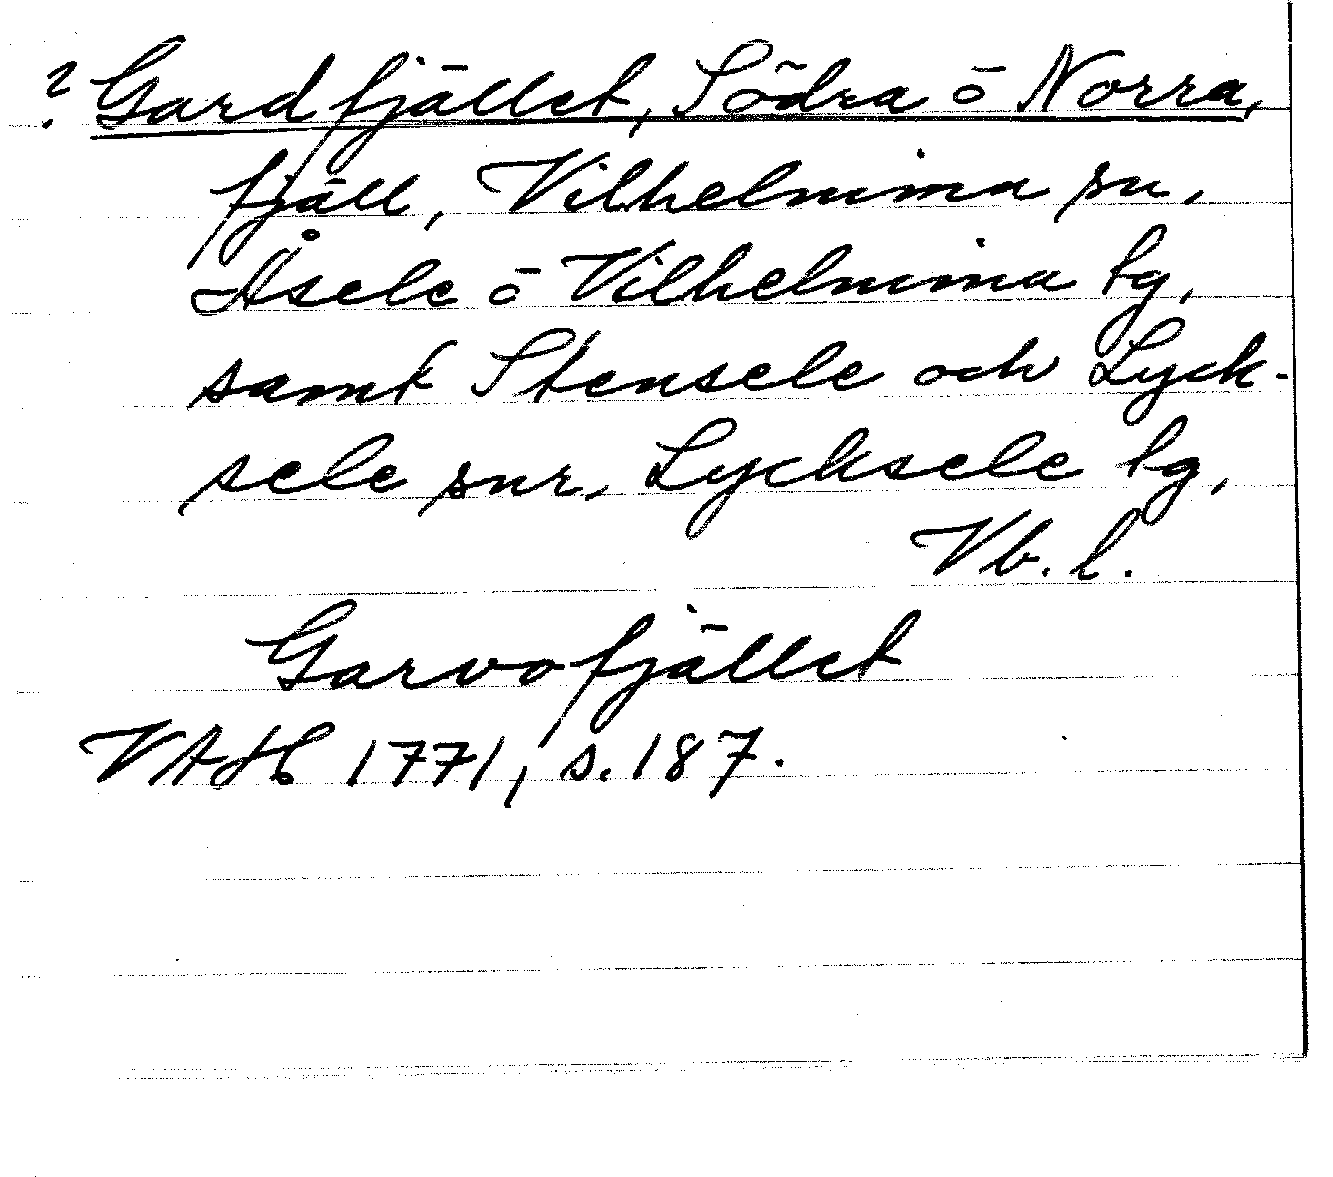 ? Gardfjället, Södra ō Norra,
fjäll, Vilhelmina sn,
Åsele ō Vilhelmina lg,
samt Stensele och Lyck-
sele snr, Lycksele lg,
Vb. l.
Garvofjället
VAH 1771, s. 187.